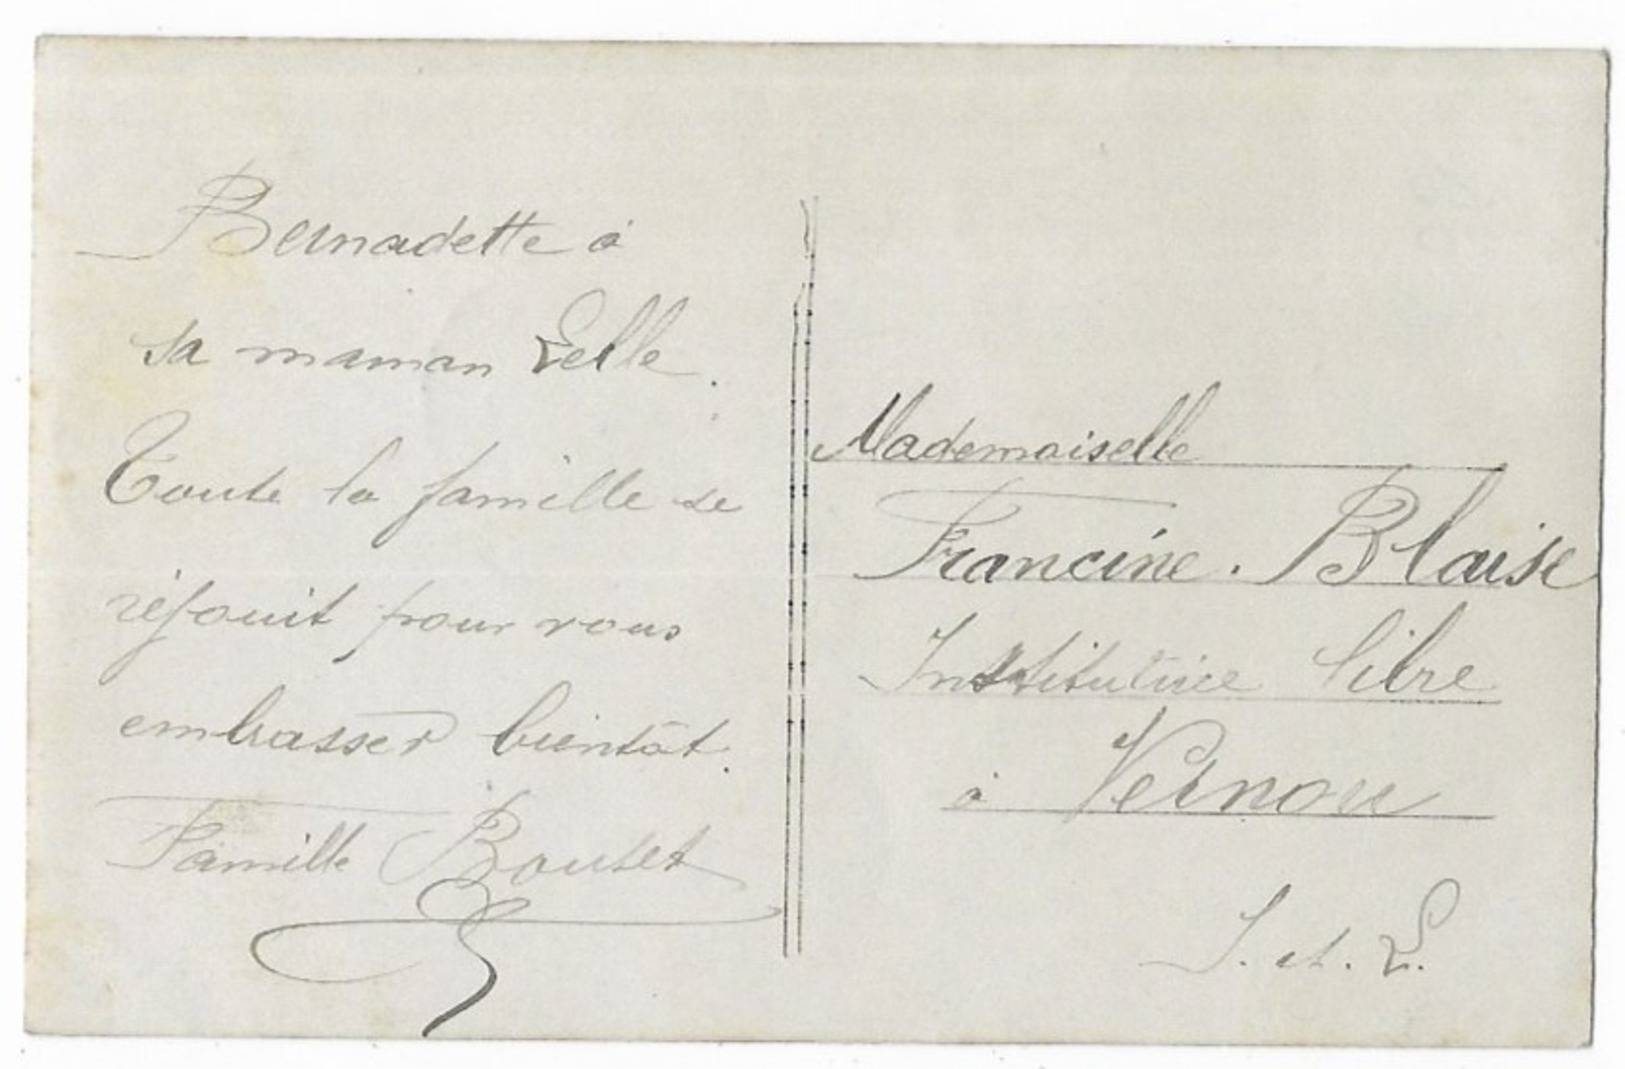 Bernadette à
sa maman Lelle.
Toute la famille se
réjouit pour vous
embrasser bientôt.
Famille Boutet
Mademoiselle
Francine. Blaise
Institutrice libre
à Vernou
I. et. L.